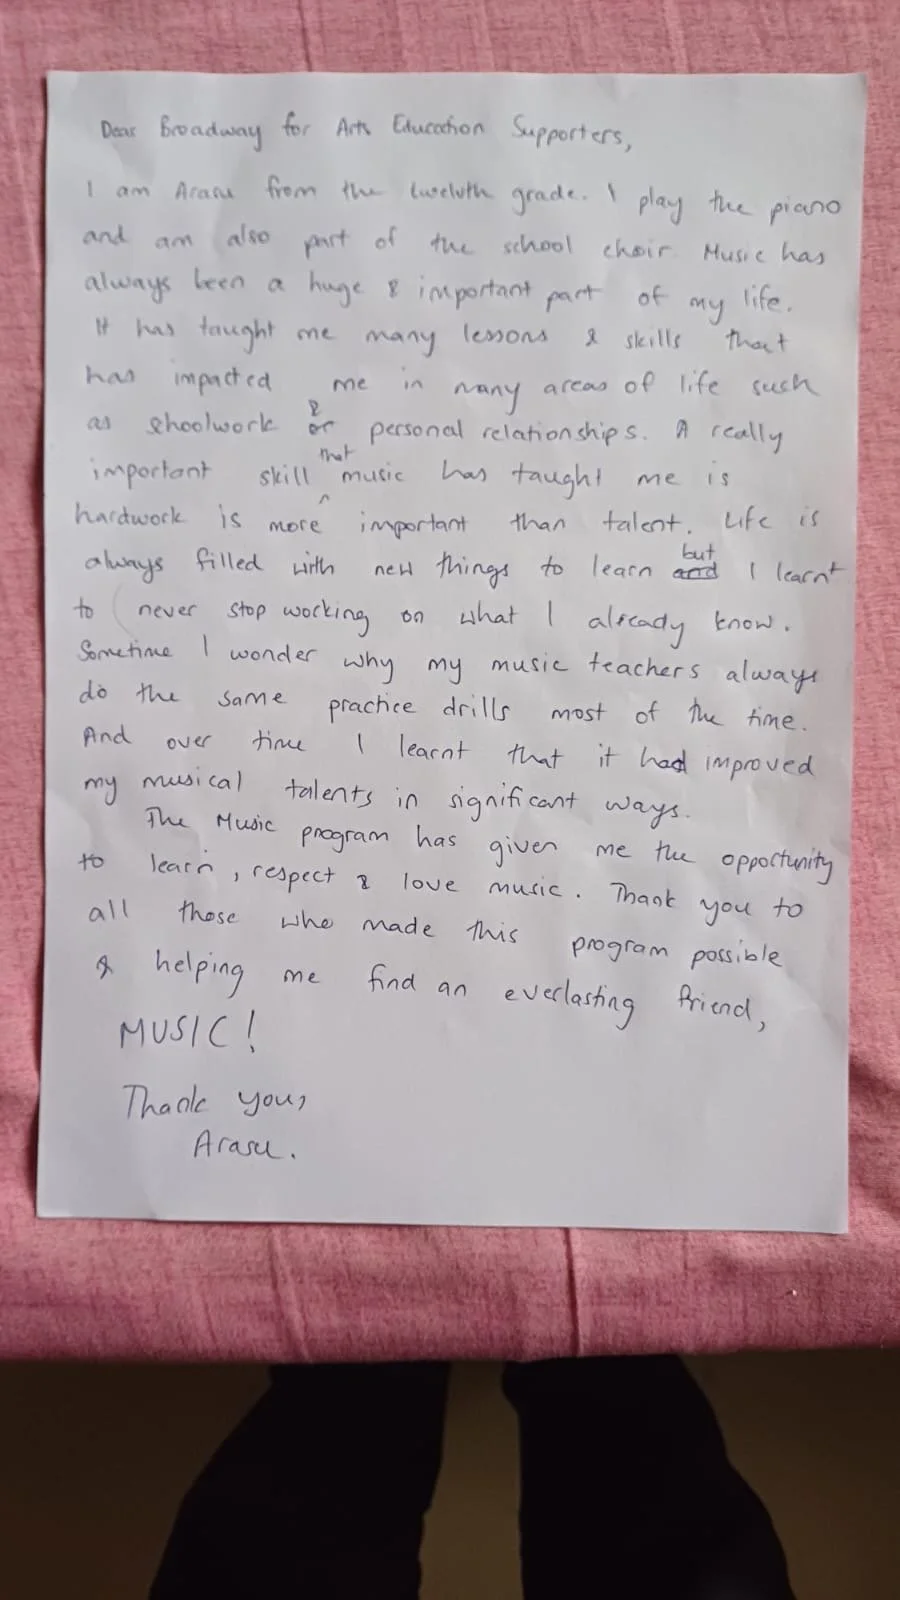 Dear Broadway for Arts Education Supporters,
I am Arasu from the twelvth grade. I play the piano
and am also part of the school choir. Music has
always been a huge & important part of my life.
It has taught me many lessons & skills that
has impacted me in many areas of life such
as schoolwork & personal relationships. A really
important skill that music has taught me is
hardwork is more important than talent. Life is
always filled with new things to learn but I learnt
to never stop working on what I already know.
Sometime I wonder why my music teachers always
do the same practice drills most of the time.
And over time I learnt that it had improved
my musical talents in significant ways.
The Music program has given me the opportunity
to learn, respect & love music. Thank you to
all those who made this program possible
& helping me find an everlasting friend,
MUSIC!
Thank you,
Arasu.